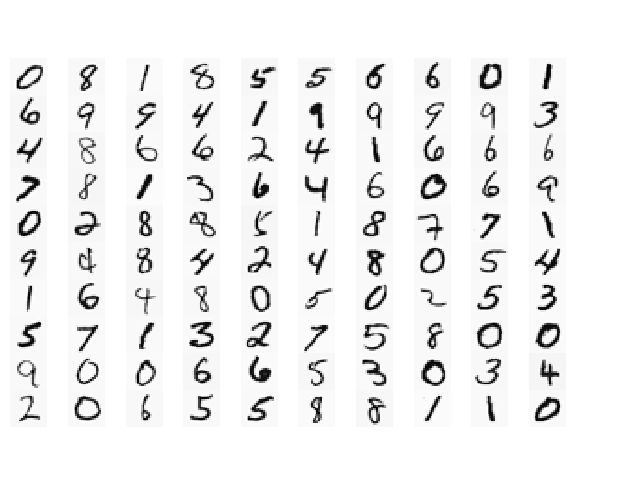 0 8 1 8 5 5 6 6 0 1
6 9 9 4 1 9 9 9 9 3
4 8 6 6 2 4 1 6 6 6
7 8 1 3 6 4 6 0 6 9
0 2 8 8 5 1 8 7 7 1
9 4 8 4 2 4 8 0 5 4
1 6 4 8 0 5 0 2 5 3
5 7 1 3 2 7 5 8 0 0
9 0 0 6 6 5 3 0 3 4
2 0 6 5 5 8 8 1 1 0